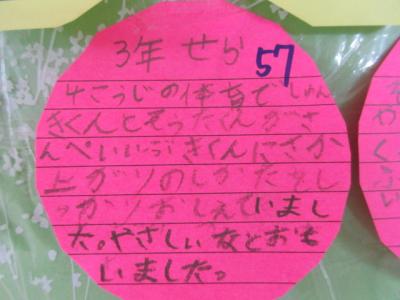 3年 せら
57
4こうじの体育でしゅん
きくんとそうたくんがさ
んぺいいぶきくんにさか
上がりのしかたをし
っかりおしえていまし
た。やさしいなとおも
いました。